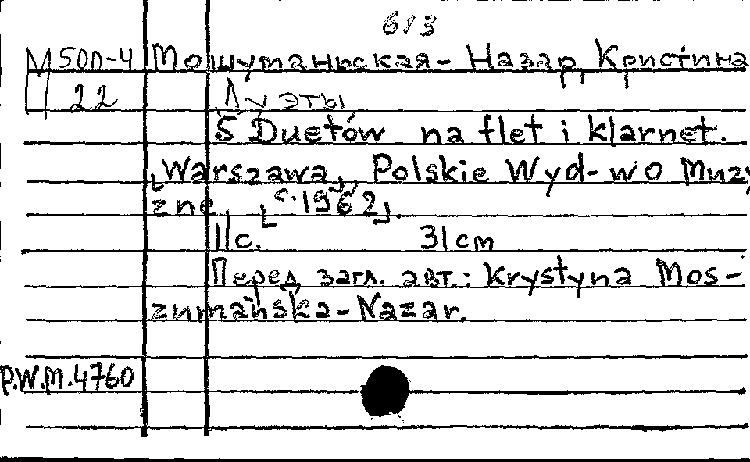 613
М 500-4 Мошуманьская-Назар, Кристина
22 Дуэты
5 Duetów na flet i klarnet.
[Warszawa], Polskie Wyd-wo Muzy
zne, [c.1962].
11c. 31cm
Перед загл. авт.: Krystyna Mos-
zumańska-Nazar.
P.W.M.4760